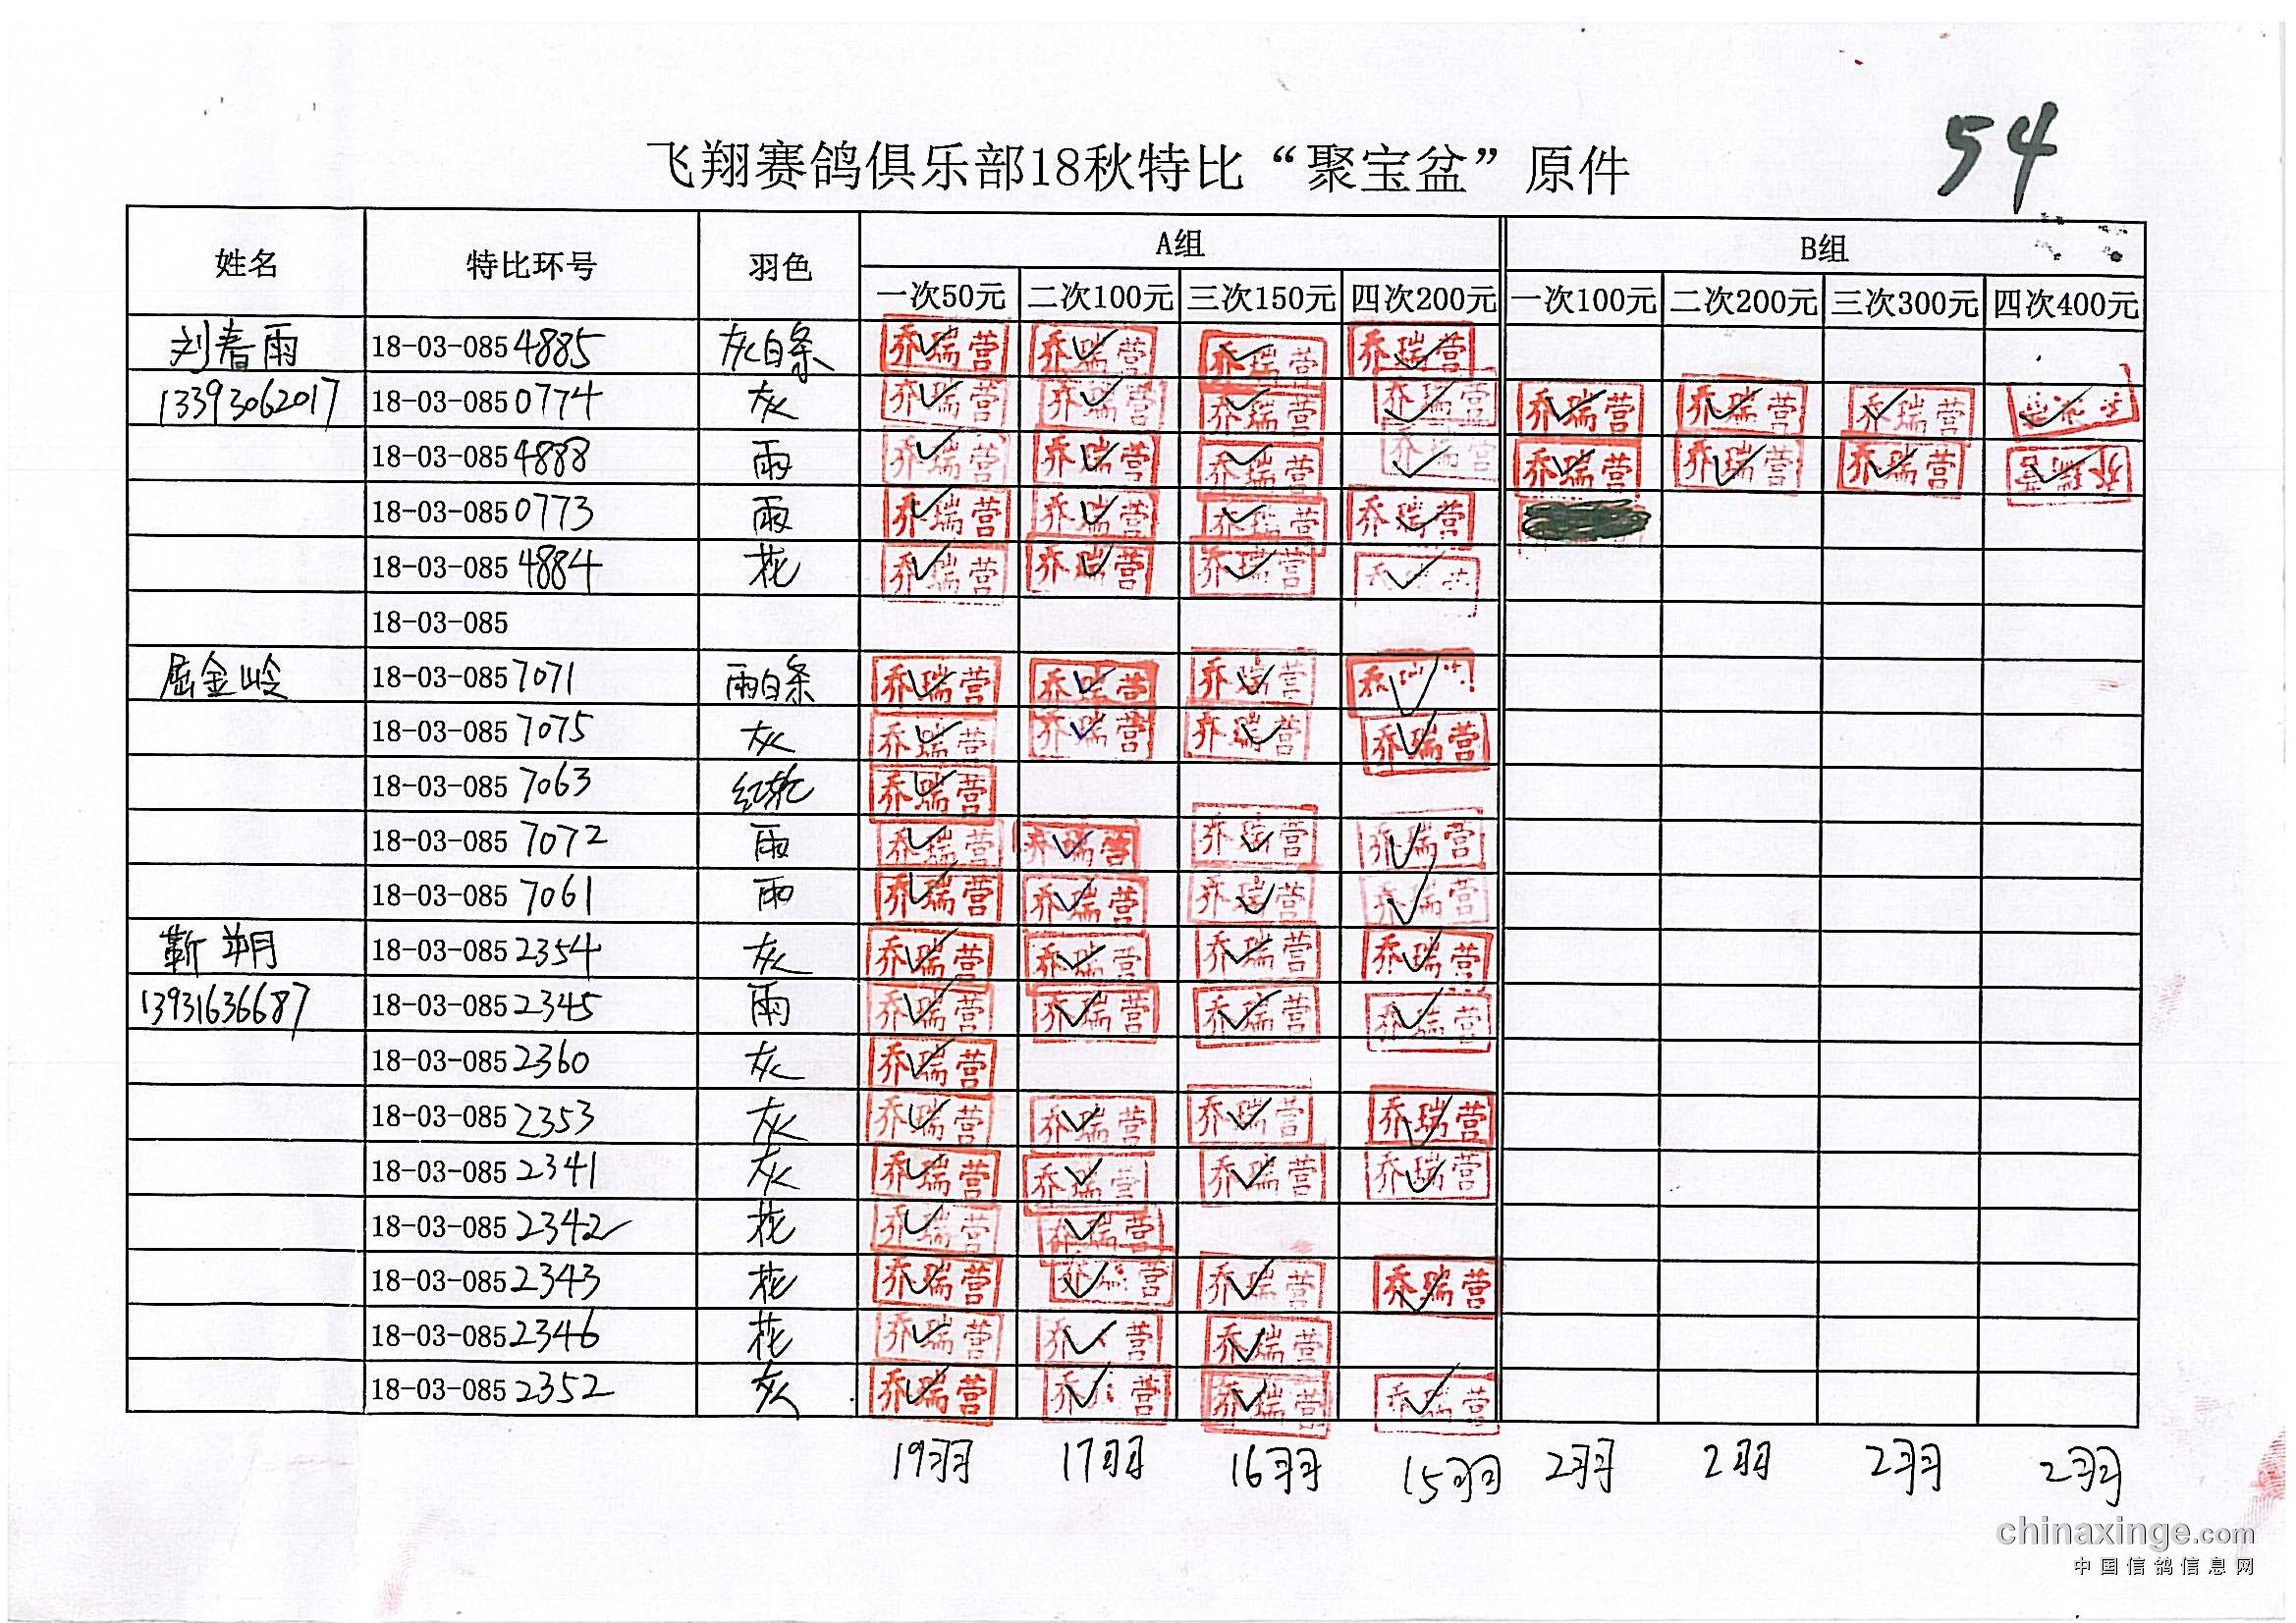 54
飞翔赛鸽俱乐部18秋特比“聚宝盆”原件
姓名 特比环号 羽色 A组 B组
一次50元 二次100元 三次150元 四次200元 一次100元 二次200元 三次300元 四次400元
刘春雨 18-03-085 4885 灰白条 乔瑞营 乔瑞营 乔瑞营 乔瑞营
13393062017 18-03-085 0774 灰 乔瑞营 乔瑞营 乔瑞营 乔瑞营 乔瑞营 乔瑞营 乔瑞营
18-03-085 4888 雨 乔瑞营 乔瑞营 乔瑞营 乔瑞营 乔瑞营 乔瑞营 乔瑞营 乔瑞营
18-03-085 0773 雨 乔瑞营 乔瑞营 乔瑞营 乔瑞营
18-03-085 4884 花 乔瑞营 乔瑞营 乔瑞营
18-03-085
屈金岭 18-03-085 7071 雨白条 乔瑞营 乔瑞营 乔瑞营
18-03-085 7075 灰 乔瑞营 乔瑞营 乔瑞营 乔瑞营
18-03-085 7063 红轮 乔瑞营
18-03-085 7072 雨 乔瑞营 乔瑞营 乔瑞营 乔瑞营
18-03-085 7061 雨 乔瑞营 乔瑞营 乔瑞营 乔瑞营
靳朔 18-03-085 2354 灰 乔瑞营 乔瑞营 乔瑞营 乔瑞营
13931636687 18-03-085 2345 雨 乔瑞营 乔瑞营 乔瑞营 乔瑞营
18-03-085 2360 灰 乔瑞营
18-03-085 2353 灰 乔瑞营 乔瑞营 乔瑞营 乔瑞营
18-03-085 2341 灰 乔瑞营 乔瑞营 乔瑞营 乔瑞营
18-03-085 2342 花 乔瑞营 乔瑞营
18-03-085 2343 花 乔瑞营 乔瑞营 乔瑞营 乔瑞营
18-03-085 2346 花 乔瑞营 乔瑞营 乔瑞营
18-03-085 2352 灰 乔瑞营 乔瑞营 乔瑞营 乔瑞营
19羽 17羽 16羽 15羽 2羽 2羽 2羽 2羽
chinaxinge.com
中国信鸽信息网